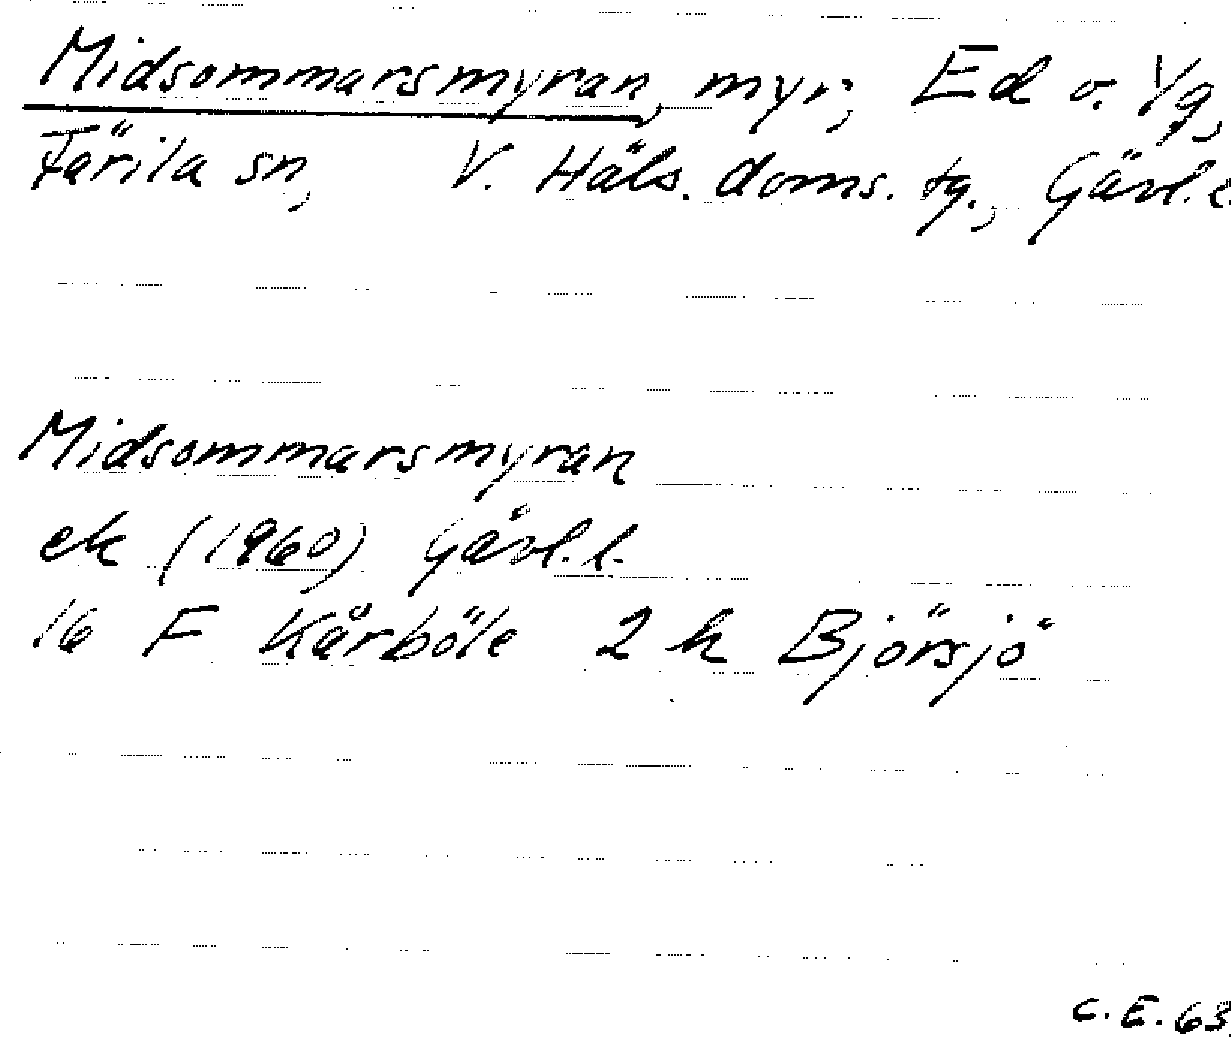 Midsommarsmyran, myr; Ed o. Yg,
Färila sn, V. Häls. doms. tg., Gävl.l.
Midsommarsmyran
ek (1960) Gävl.l.
16 F Kårböle 2 h Björsjö
C.E.63.